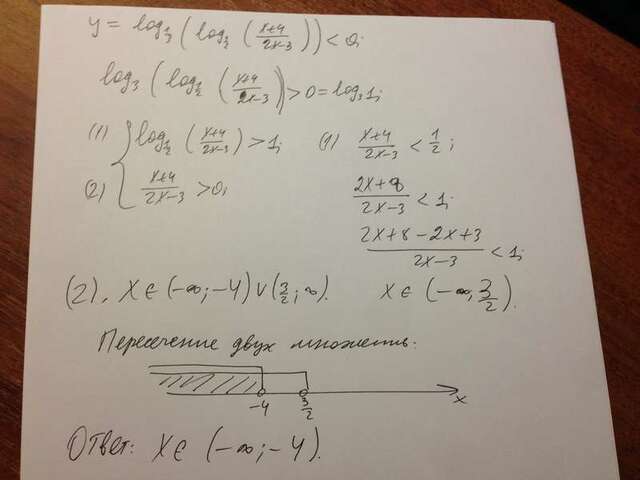 y = log_{1/3} ( log_{1/2} ( (x+4)/(2x-3) ) ) < 0;
log_3 ( log_{1/2} ( (x+4)/(2x-3) ) > 0 = log_3 1;
(1) { log_{1/2} ( (x+4)/(2x-3) ) > 1;
(2) (x+4)/(2x-3) > 0;
(1) (x+4)/(2x-3) < 1/2;
(2x+8)/(2x-3) < 1;
(2x+8-2x+3)/(2x-3) < 1;
x ∈ (-∞, 3/2).
(2). x ∈ (-∞; -4) ∪ (3/2; ∞).
Пересечение двух множеств:
-4 3/2 x
Ответ: x ∈ (-∞; -4).